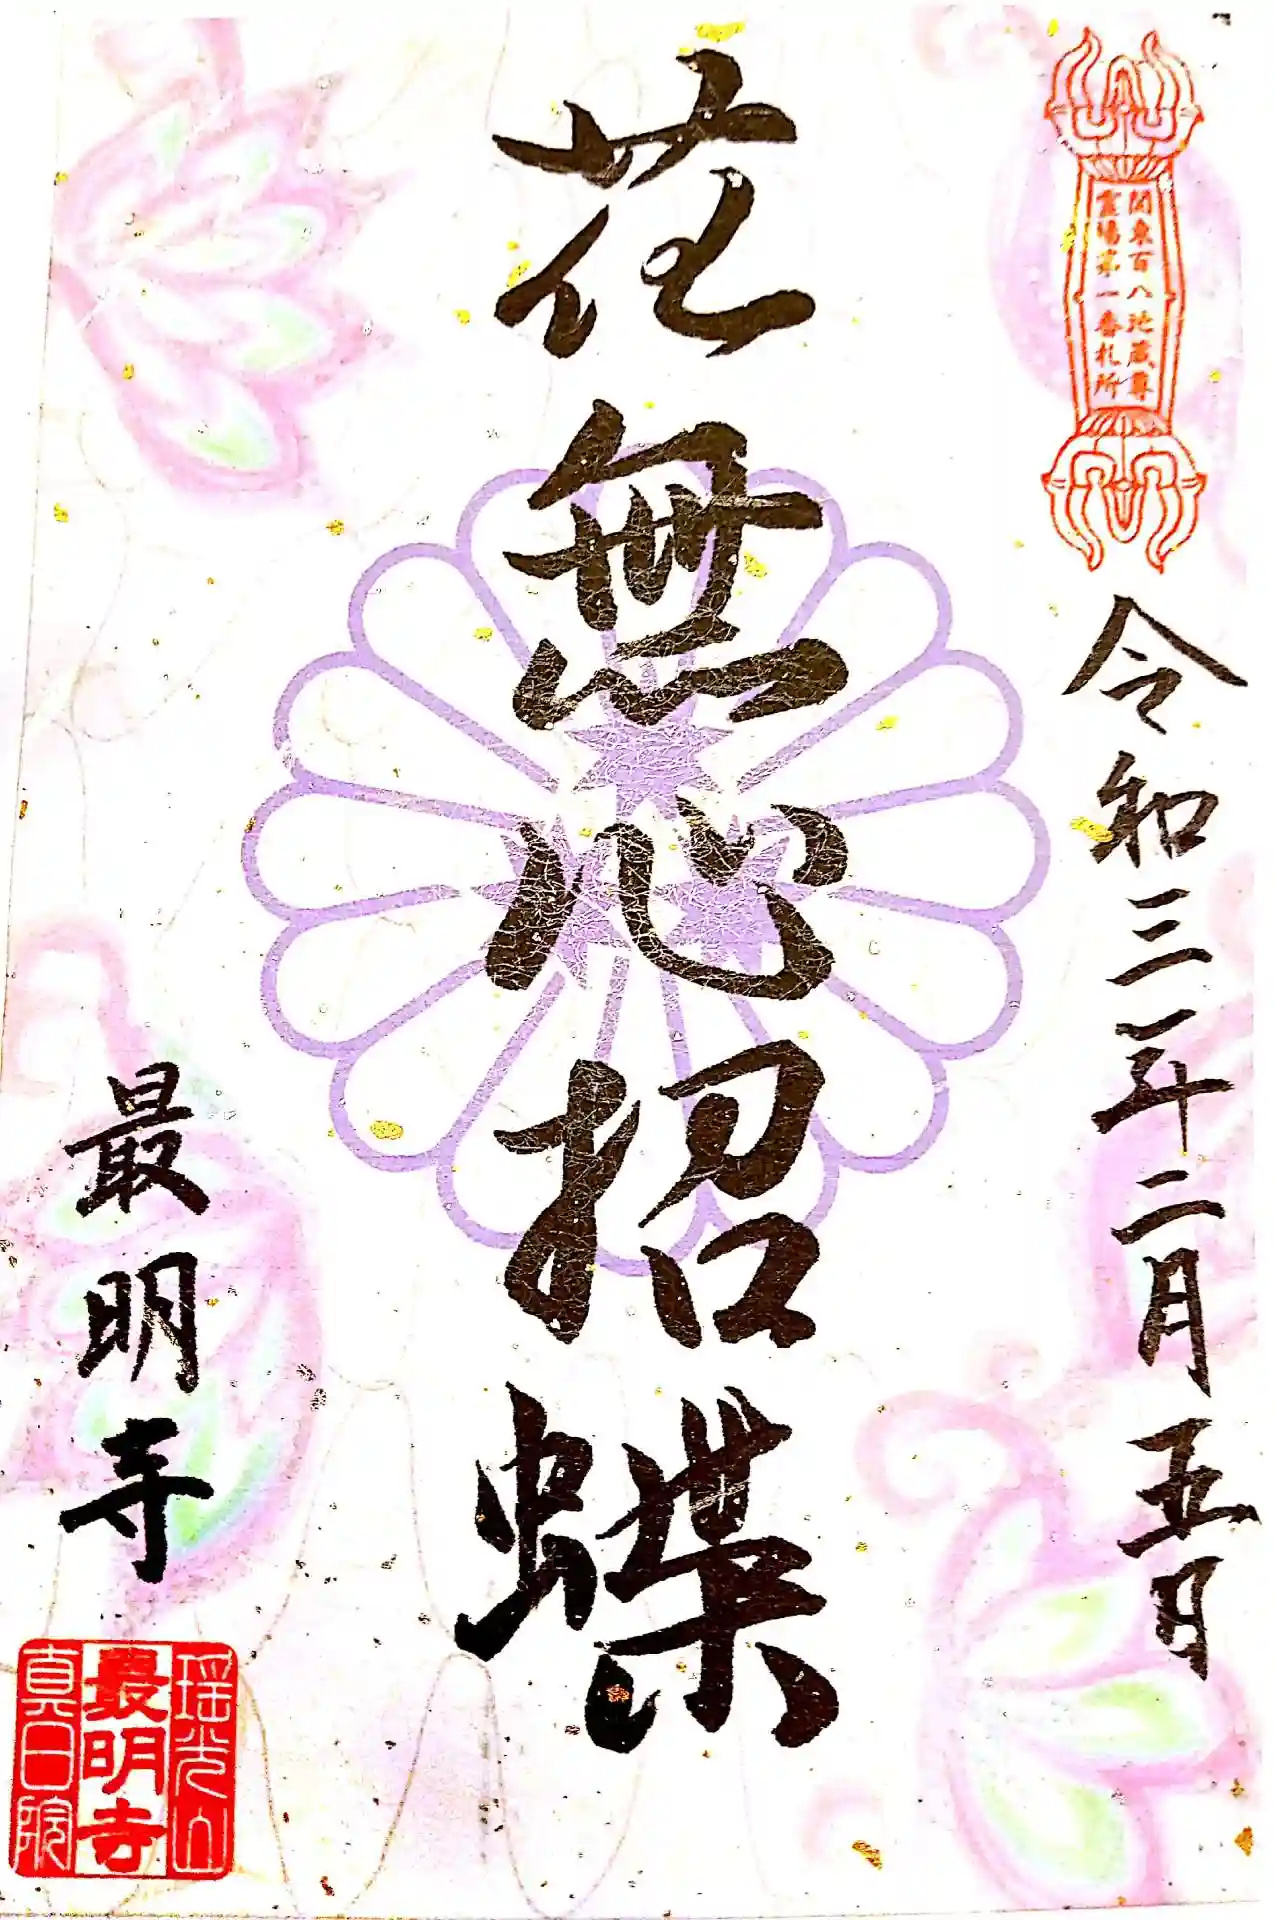 関東百八地蔵尊
霊場第一番札所
令和三年二月五日
花無心招蝶
最明寺
瑶光山
最明寺
真日院